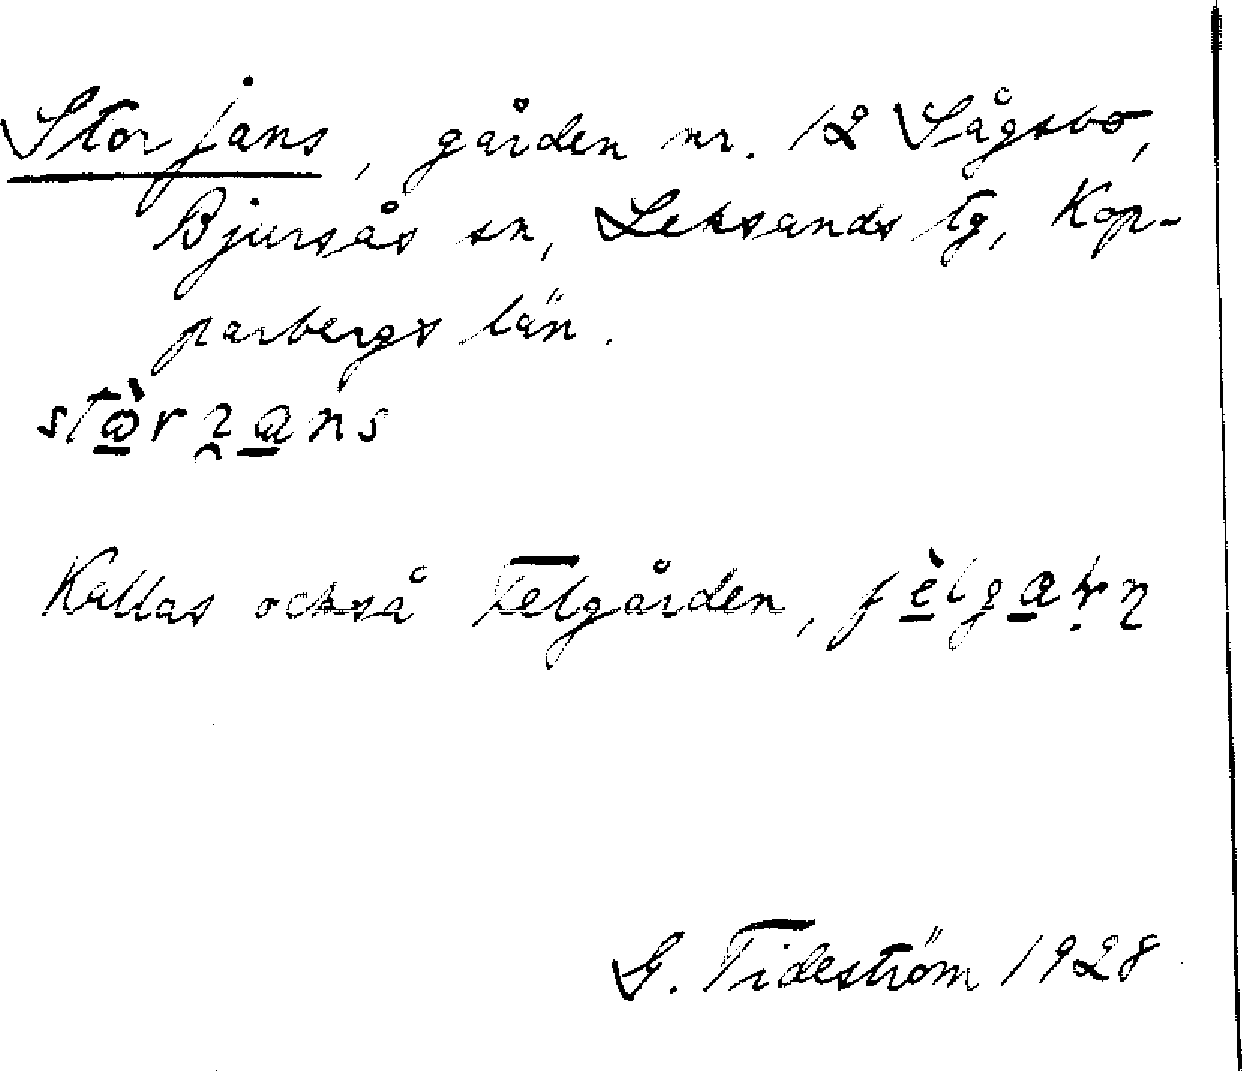 Storjans, gården nr. 12 Sågsbo,
Bjursås sn, Leksands tg, Kop-
parbergs län.
Kallas också Felgården,
G. Tideström 1928